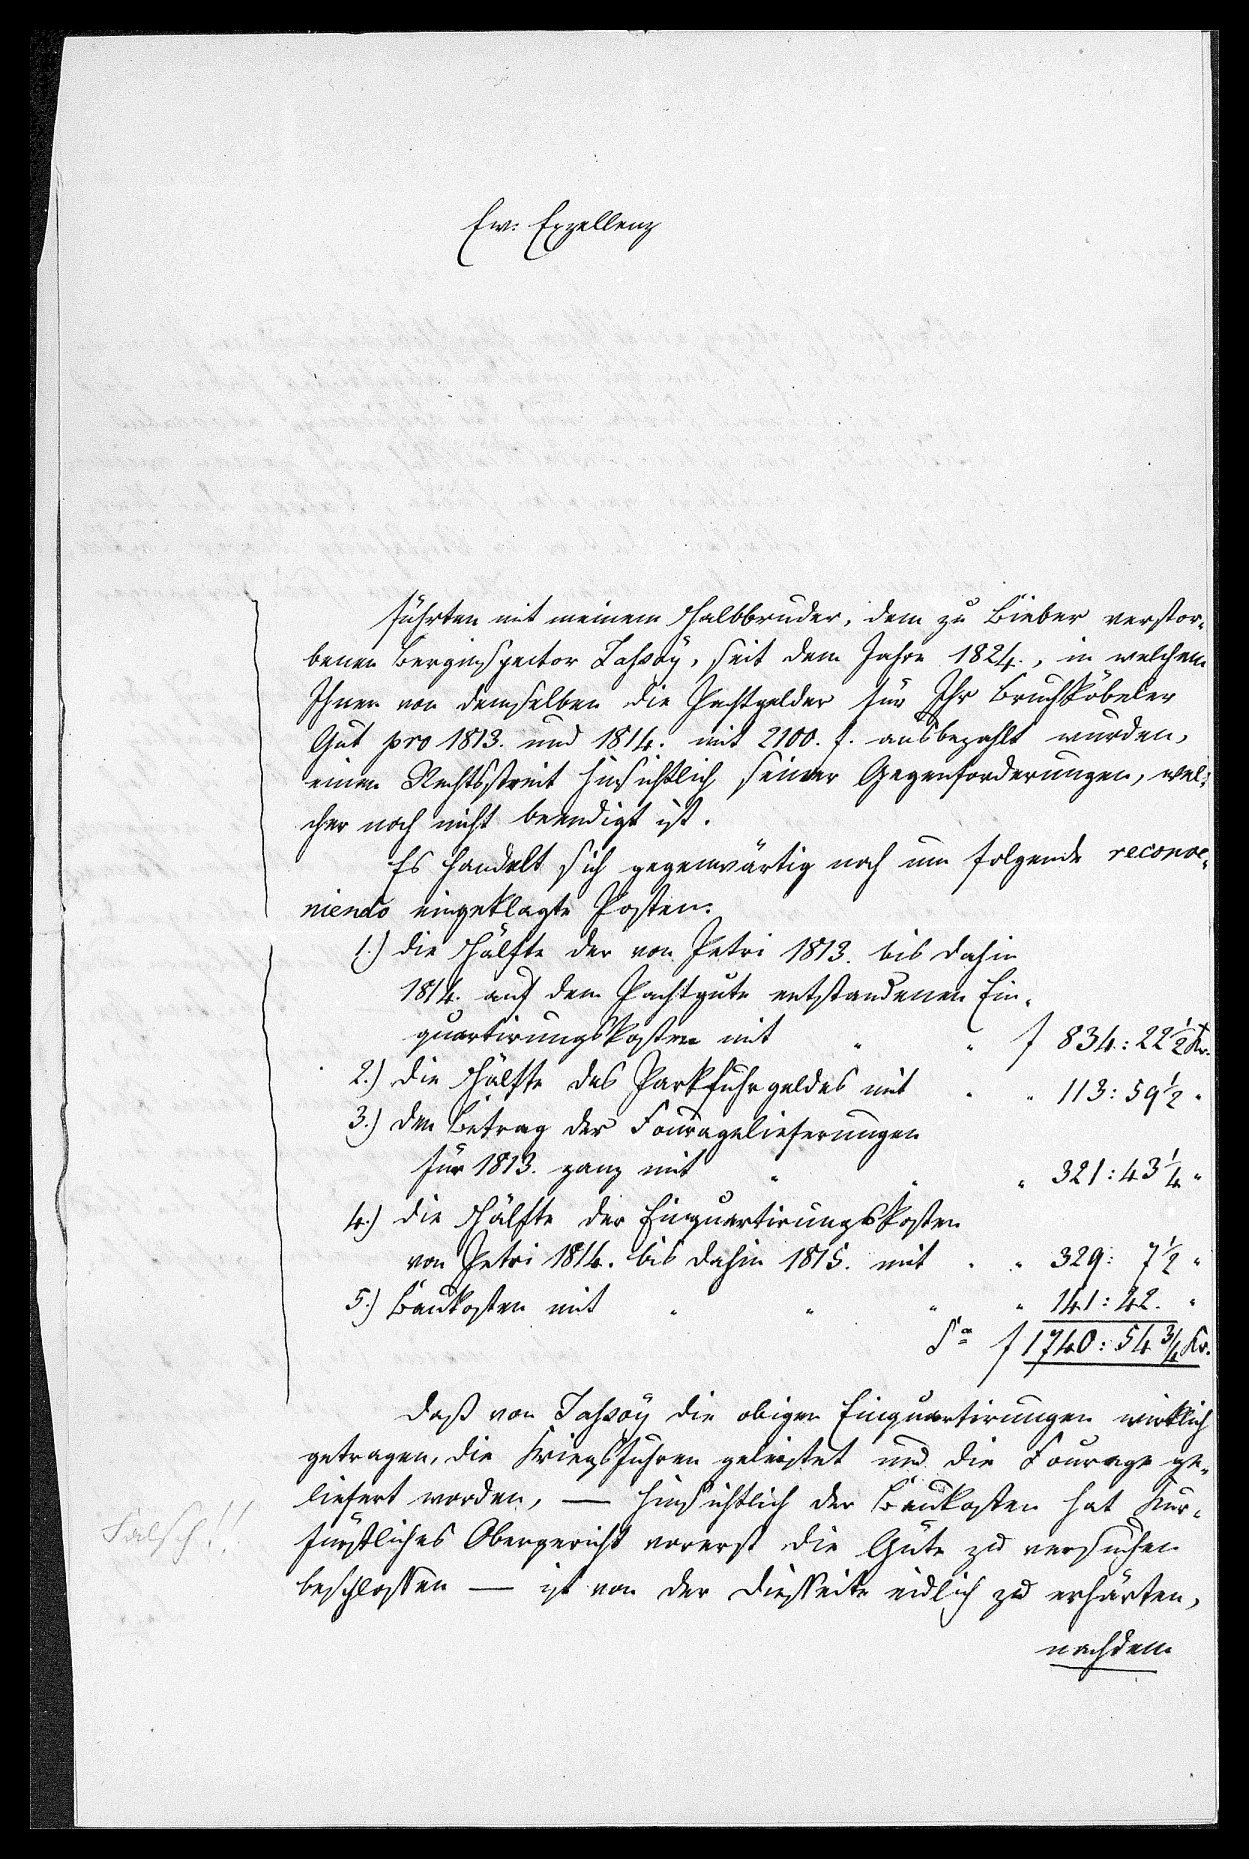 Ew: Exzellenz
führten mit meinem Halbbruder, dem zu Bieber verstor„
benen Berginspector Lassoÿ, seit dem Jahre 1824., in welchem
Ihnen von demselben die Pachtgelder für Ihr Bruchköbeler
Gut pro 1813. und 1814. mit 2100. f. ausbezahlt wurden,
einen Rechtsstreit hinsichtlich seiner Gegenforderungen, wel„
cher noch nicht beendigt ist.
Es handelt sich gegenwärtig noch um folgende reconve„
niendo eingeklagte Posten:
1.) die Hälfte der von Petri 1813. bis dahin
1814. auf dem Pachtgute entstandenen Ein„
quartirungskosten mit " " f 834:22½ Kr.
2.) die Hälfte des Parkfuhrgeldes mit " " 113:59½ "
3.) den Betrag der Fouragelieferungen
für 1813. ganz mit " " " 321:43¼ "
4.) die Hälfte der Einquartirungskosten
von Petri 1814. bis dahin 1815. mit " " 329: 7½ "
5.) Baukosten mit " " " " 141:42. "
Sa f 1740:54¾ Kr.
Daß von Lassoÿ die obigen Einquartirungen wirklich
getragen, die Kriegsfuhren geleistet und die Fourage ge„
liefert worden, — hinsichtlich der Baukosten hat Kur„
fürstliches Obergericht vorerst die Güte zu versuchen
beschlossen — ist von der Diesseite eidlich zu erhärten,
nachdem
Falsch!!